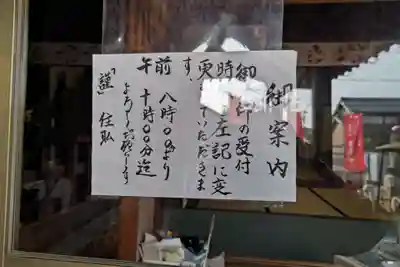 御案内
御納の受付
時 左記に変
更 いただきま
す
午前 八時00より
十時00分迄
よろしくお願いします
「謹」 住職